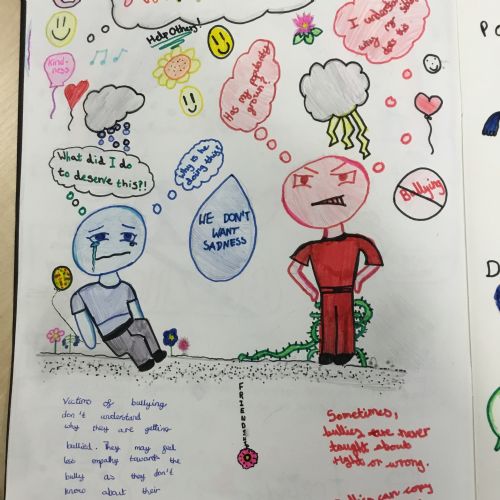 Help Others!
Kind-
ness
Has my popularity
grown?
I understand
why my
What did I do
to deserve this?!
Why is he
doing this?
WE DON'T
WANT
SADNESS
Bullying
FRIENDS
Victims of bullying
don't understand
why they are getting
bullied. They may feel
less empathy towards the
bully as they don't
know about their
Sometimes,
bullies are never
taught about
right or wrong.
can copy